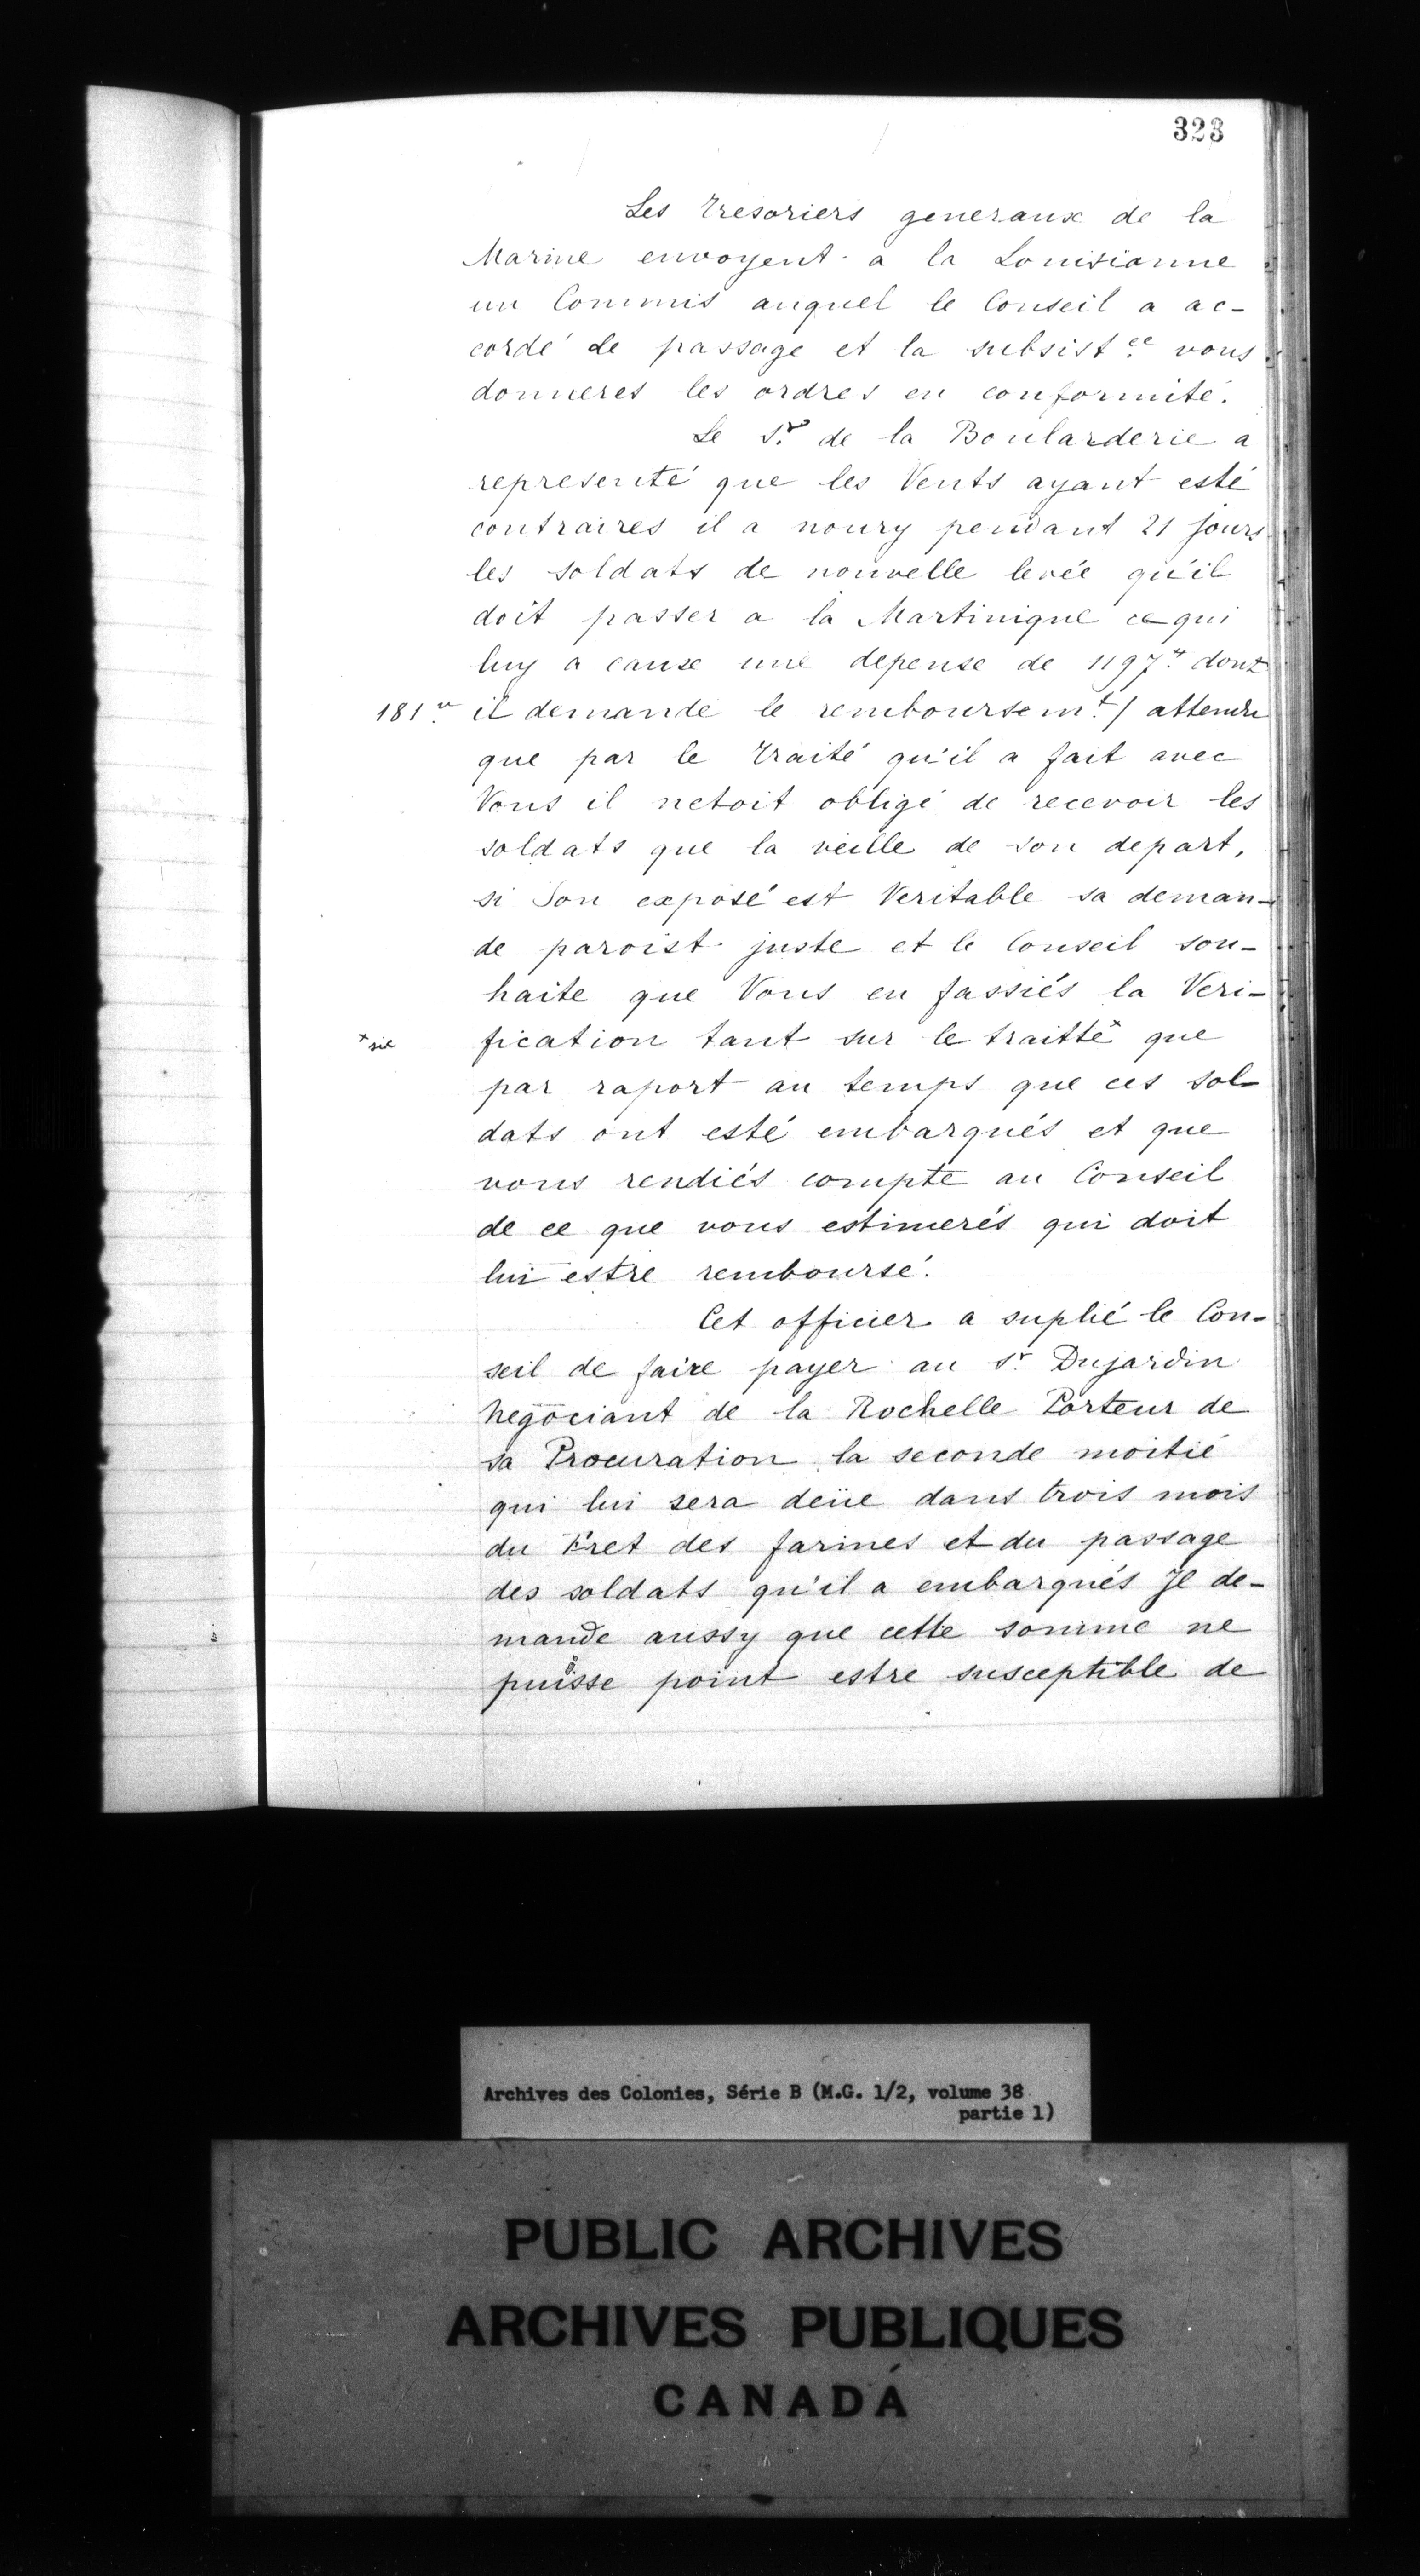 323
Les Tresoriers generaux de la
Marine envoyent a la Louisianne
un Commis auquel le Conseil a ac-
cordé de passage et la subsist.ce vous
donneres les ordres en conformité.
Le S.r de la Boularderie a
representé que les Vents ayant esté
contraires il a noury pendant 21 jours
les soldats de nouvelle levée qu'il
doit passer a la Martinique ce qui
luy a cause une depense de 1197.tt dont
181.v il demande le remboursem.t / attendu
que par le Traité qu'il a fait avec
Vous il netoit obligé de recevoir les
soldats que la veille de son depart,
si Son exposé est Veritable sa deman-
de paroist juste et le Conseil sou-
haite que Vous en fassiés la Veri-
x sic fication tant sur le traitté x que
par raport au temps que ces sol-
dats ont esté embarqués et que
vous rendiés compte au Conseil
de ce que vous estimerés qui doit
lui estre remboursé.
Cet officier a suplié le Con-
seil de faire payer au S.r Dujardin
Negociant de la Rochelle Porteur de
sa Procuration la seconde moitié
qui lui sera deüe dans trois mois
du Fret des farines et du passage
des soldats qu'il a embarqués Jl de-
mande aussy que cette somme ne
puisse point estre susceptible de
Archives des Colonies, Série B (M.G. 1/2, volume 38
partie 1)
PUBLIC ARCHIVES
ARCHIVES PUBLIQUES
CANADA